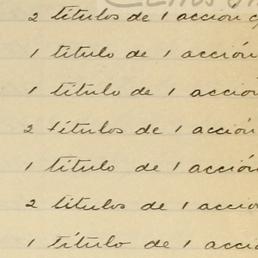 2 títulos de 1 acción
1 título de 1 acción
1 título de 1 acción
2 títulos de 1 acción
1 título de 1 acción
2 títulos de 1 acción
1 título de 1 acción